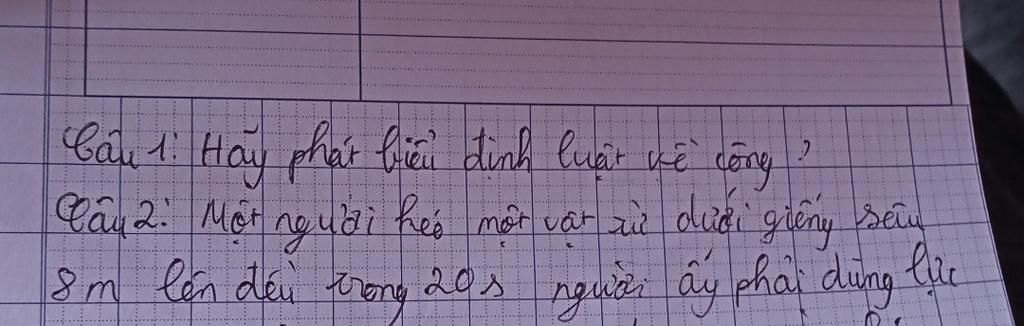 Câu 1: Hãy phát biểu định luật về công?
Câu 2: Một người kéo một vật từ dưới giếng sâu
8m lên đều trong 20s người ấy phải dùng lực